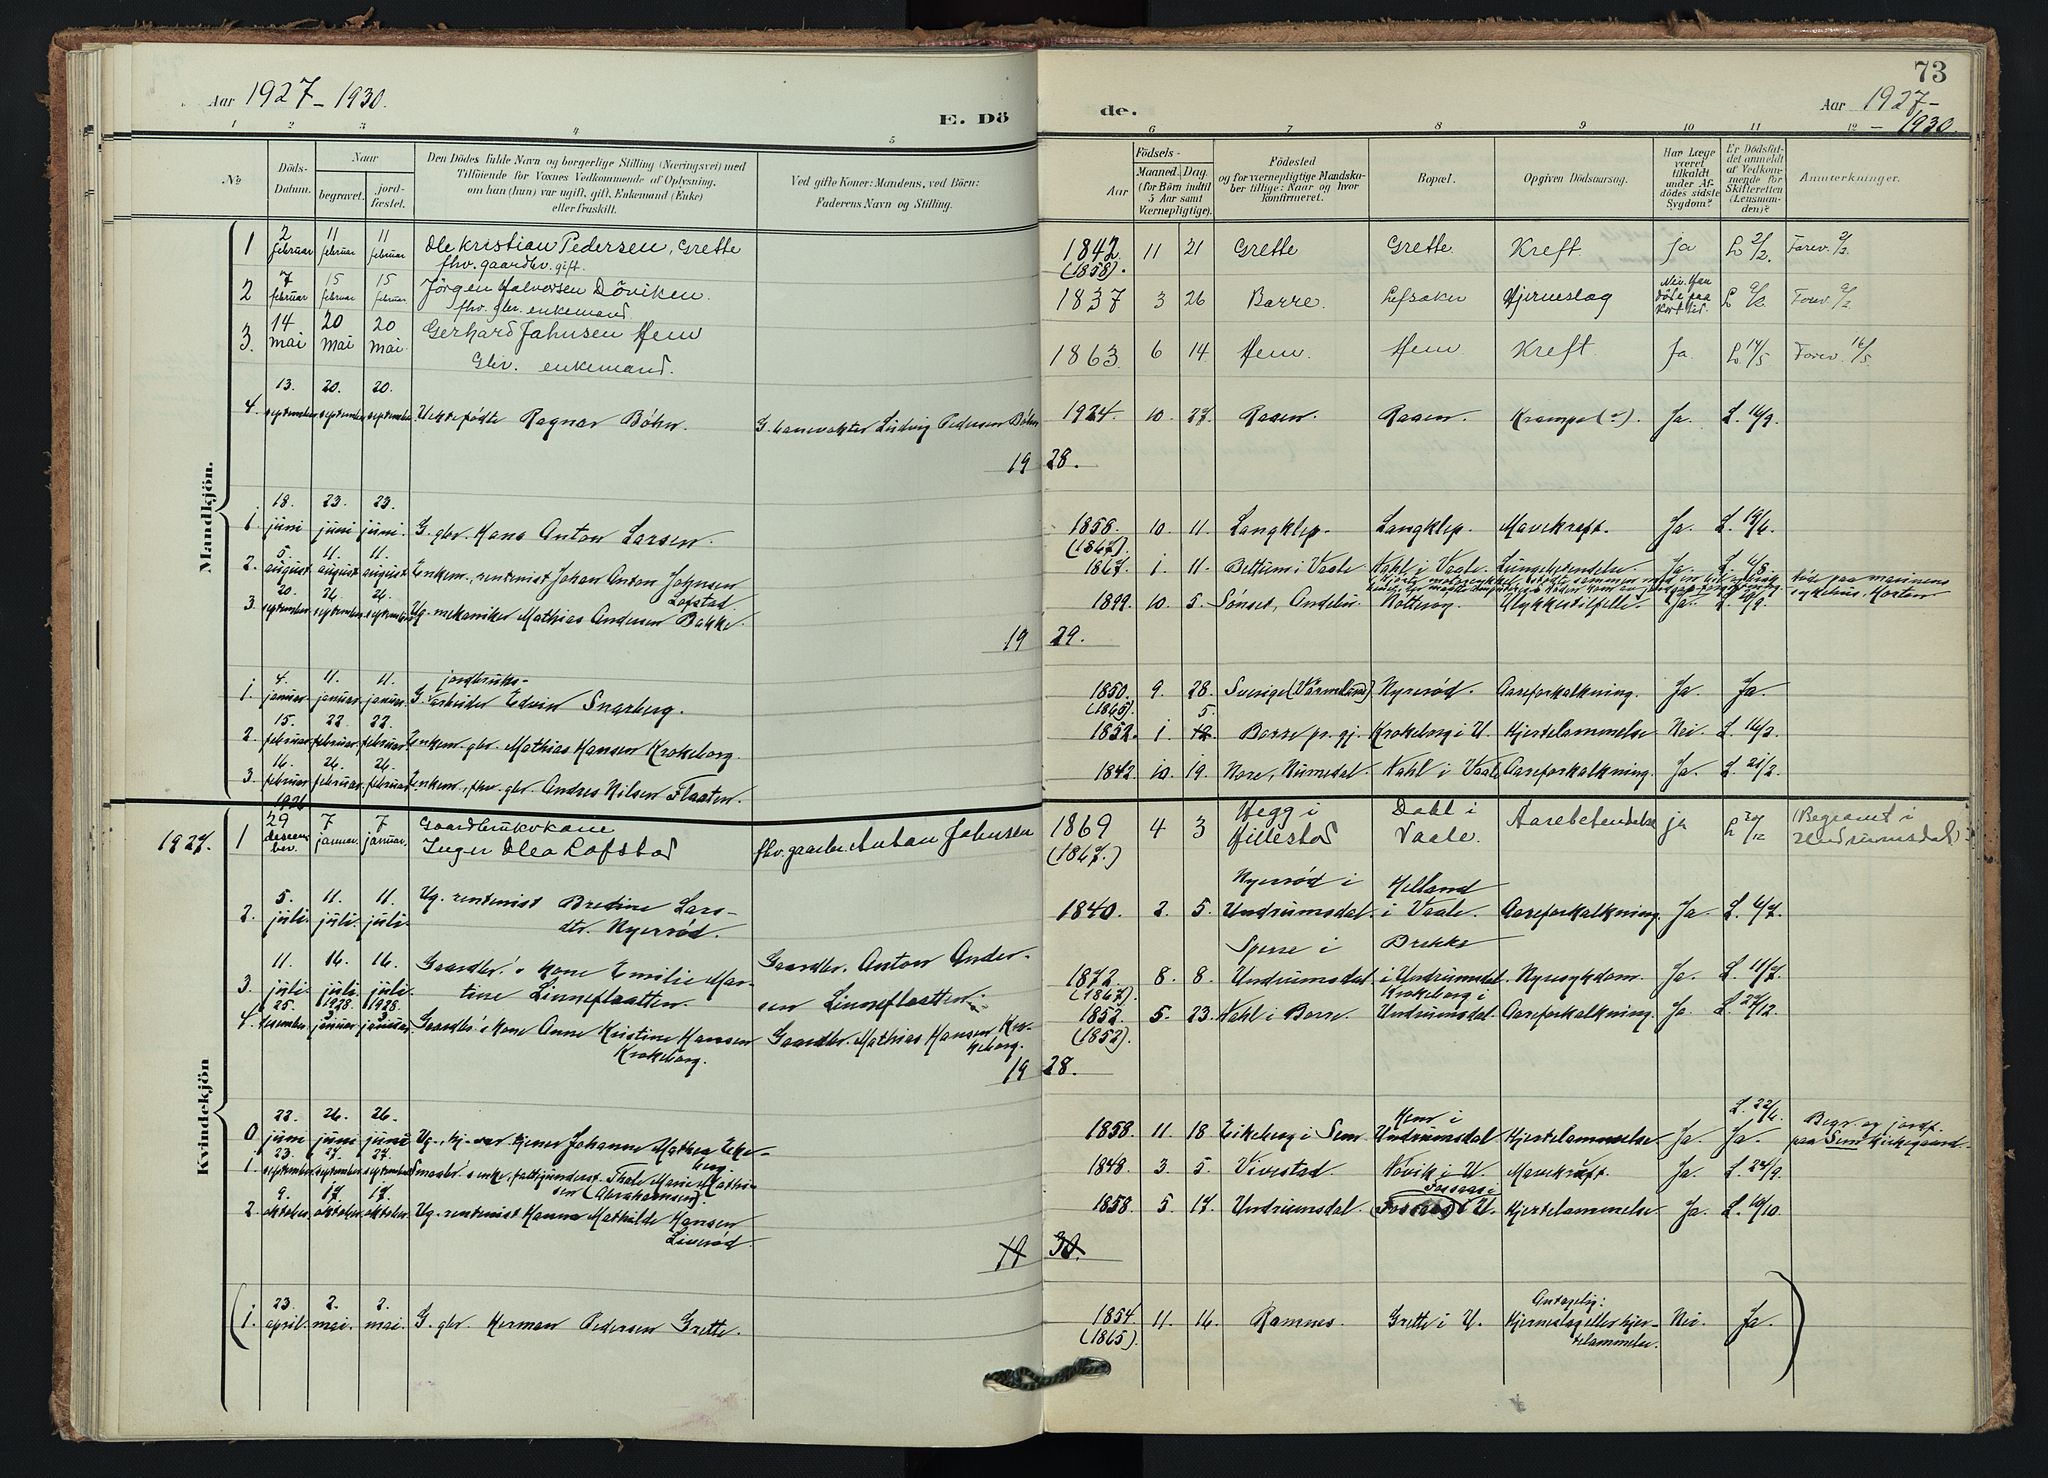 73
Aar 1927-1930.
E. Dö
de.
Aar 1927-
-1930.
1 2 3 4 5 6 7 8 9 10 11 12
No
Döds-
Datum.
Naar
begravet.
jord-
fæstet.
Den Dödes fulde Navn og borgerlige Stilling (Næringsvei) med
Tilföiende for Voxnes Vedkommende af Oplysning,
om han (hun) var ugift, gift, Enkemand (Enke)
eller fraskilt.
Ved gifte Koner: Mandens, ved Börn:
Faderens Navn og Stilling.
Födsels-
Aar
Maaned. Dag.
(for Börn indtil
5 Aar samt
Værnepligtige).
Födested
og for værnepligtige Mandska-
ber tillige: Naar og hvor
konfirmeret.
Bopæl.
Opgiven Dödsaarsag.
Har Læge
været
tilkaldt
under Af-
dödes sidste
Sygdom?
Er Dödsfal-
det anmeldt
af Vedkom-
mende for
Skifteretten
(Lensman-
den)?
Anmærkninger.
Mandkjön.
1 2 februar 11 februar 11 februar Ole Kristian Pedersen, Grette fhv. gaardbr. gift. 1842 (1858). 11 21 Grette Grette Kreft ja L 2/2. Forev. 2/2.
2 7 februar 15 februar 15 februar Jörgen Halvorsen Döviken fhv. gbr. enkemand. 1837 3 26 Borre Lefsaker Hjerneslag Nei. Han döde paa kort tid. L 9/2. Forev. 9/2
3. 14 mai 20 mai 20 mai Gerhard Jahnsen Hem Gbr. enkemand. 1863 6 14 Hem. Hem Kreft Ja. L 14/5 Forev. 16/5
4. 13. september 20. september 20. september Uektefödte Ragnar Böhn. G. banevokter Ludvig Pedersen Böhn 1924. 10. 27. Raaen. Raaen. Krampe(-). Ja. L. 14/9.
1928.
1. 18. juni 23. juni 23. juni. G. gbr. Hans Anton Larsen. 1858. (1867). 10. 11. Langklep. Langklep. Mavekreft. Ja. L. 19/6.
2. 5. august 11. august 11. august Enkem., rentenist Johan Anton Johnsen Lofstad. 1867. 1. 11. Bettum i Vaale Dahl i Vaale. Lungebetendelse. Ja. L. 6/8.
3. 20. september 26. september 26. september Ug. mekaniker Mathias Andersen Bakke. 1899. 10. 5. Sönset, Andebu. Ulykkestilfelle. Ja. L. döde paa marinens sykehus, Horten
1929.
1. 4. januar 11. januar 11. januar G. jordbruks-arbeider Edvin Snarberg. 1850. (1865). 9. 28. Sverige (Värmland) Nyerröd. Aareforkalkning. Ja. Ja.
2. 15. februar 22. februar 22. februar Enkem. gbr. Mathias Hansen Krokeborg. 1852. 1. 5. 12. Borre pr.gj. Krokeborg i U. Hjertelammelse Nei. L. 16/2.
3. 16. februar 26. februar 26. februar Enkem., fhv. gbr. Andres Nilsen Flaaten. 1842. 10. 19. Nore, Numedal. Dahl i Vaale Aareforkalkning. Ja. L. 21/2.
Kvindekjön
1927. 1 1926 29 desember. 7 januar. 7 januar. Gaardbrukskone Inger Olea Lofstad fhv. gaardbr. Anton Johnsen 1869 (1867.) 4 3 Hegg i Hillestad Dahl i Vaale. Aarebetendelse ja L 30/12 (Begravet i Undrumsdal)
2. 5. juli. 11. juli. 11. juli. Ug. rentenist Bredine Lars-dtr. Nyerröd. 1840. 2. 5. Nyerröd i Undrumsdal Helland i Vaale. Aareforkalkning. Ja. L. 6/7.
3. 11. juli. 16. juli. 16. juli. Gaardbr.'s kone Emilie Martine Linneflaatten. Gaardbr. Anton Andersen Linneflaatten. 1872. (1867). 8. 8. Sperre i Undrumsdal Brekke i Undrumsdal Nyresykdom. Ja. L. 11/7.
4. 25. desember. 1928. 3. januar 1928. 3. januar. Gaardbr.'s kone Anne Kristine Hansen Krokeborg. Gaardbr. Mathias Hansen Krokeborg. 1852. (1852). 5. 23. Dahl i Borre. Krokeborg i Undrumsdal. Aareforkalkning. Ja. L. 27/12.
1928.
0. 22. juni 26. juni 26. juni Johanne Mathea Eke-berg. 1858. 11. 18 Eikeberg i Sem Hem i Undrumsdal Hjertelammelse. Ja. L. 22/6. Ja. Begr. og jordf. paa Sem kirkegaard.
1. 23. september 27. september 27. september Smaabr.'s enke, Thale Marie Mathisen (Abrahamsen) 1848. 3. 5. Vivestad Növik i U. Mavekreft. Ja. L. 24/9.
2. 9. oktober. 17. oktober. 17. oktober. Ug. rentenist Hanna Mathilde Hansen Liveröd. 1858. 5. 17. Undrumsdal. i U. Hjertelammelse Ja. L. 10/10.
1930.
(1. 23. april. 2. mai. 2. mai. G. gbr. Herman Pedersen Grette. 1854. (1865). 11. 16. Ramnes. Grette i U. Antagelig: Hjerneslag eller hjertelammelse. Nei. Ja. )